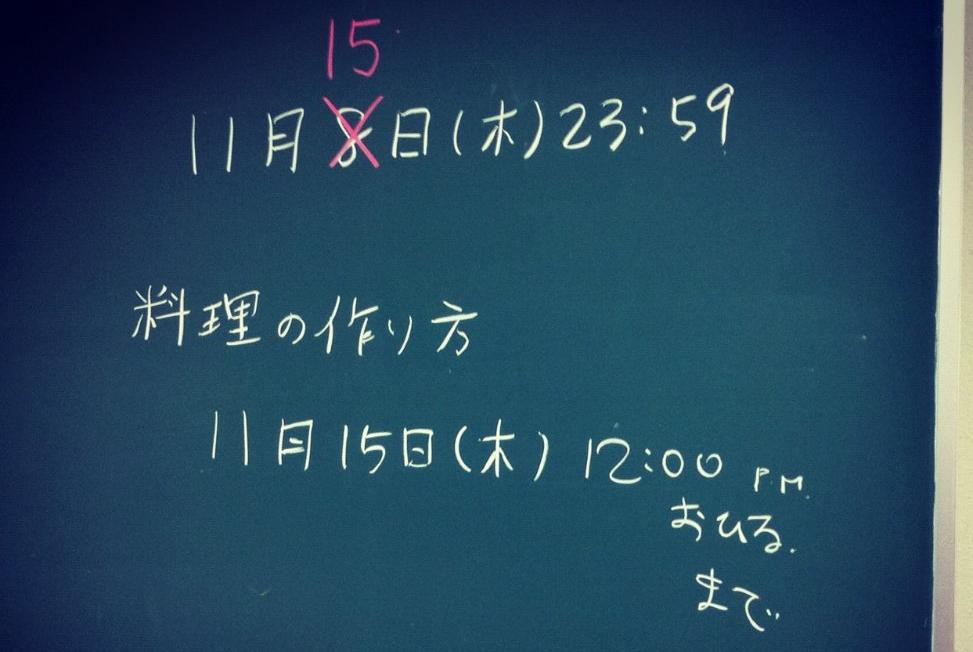 15
11月8日(木)23:59
料理の作り方
11月15日(木) 12:00 P.M.
おひる.
まで